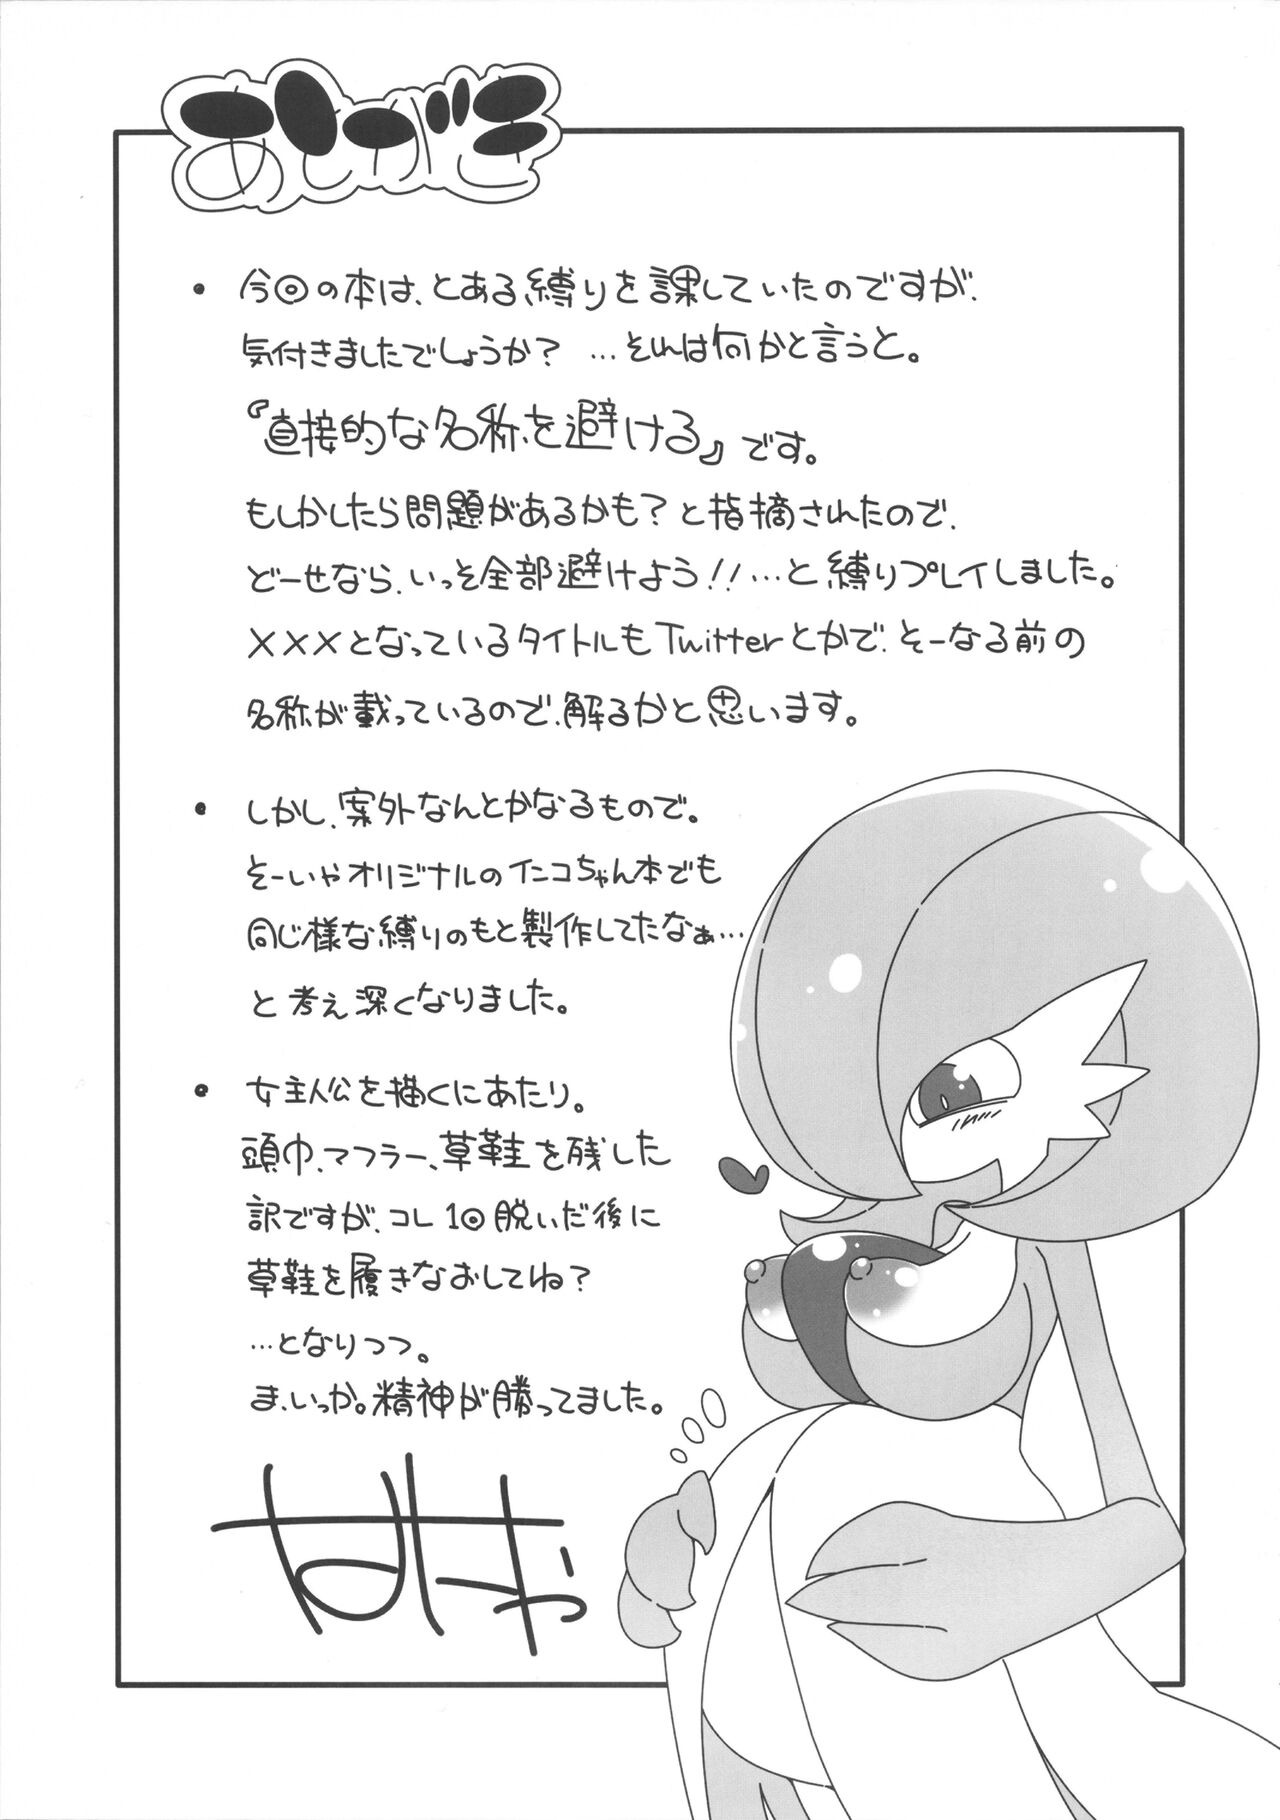 あとがき
・今回の本は、とある縛りを課していたのですが、
気付きましたでしょうか? …それは何かと言うと。
『直接的な名称を避ける』です。
もしかしたら問題があるかも?と指摘されたので、
どーせなら、いっそ全部避けよう!!…と縛りプレイしました。
×××となっているタイトルもTwitterとかで、そーなる前の
名称が載っているので、解るかと思います。
・しかし、案外なんとかなるもので。
そーいやオリジナルのインコちゃん本でも
同じ様な縛りのもと製作してたなぁ…
と考え深くなりました。
・女主人公を描くにあたり。
頭巾、マフラー、草鞋を残した
訳ですが、コレ1回脱いだ後に
草鞋を履きなおしてね?
…となりつつ。
ま、いっか。精神が勝ってました。